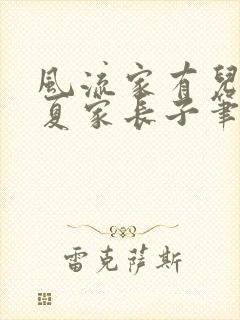 風流家有兒
夏家長子筆
雷克薩斯